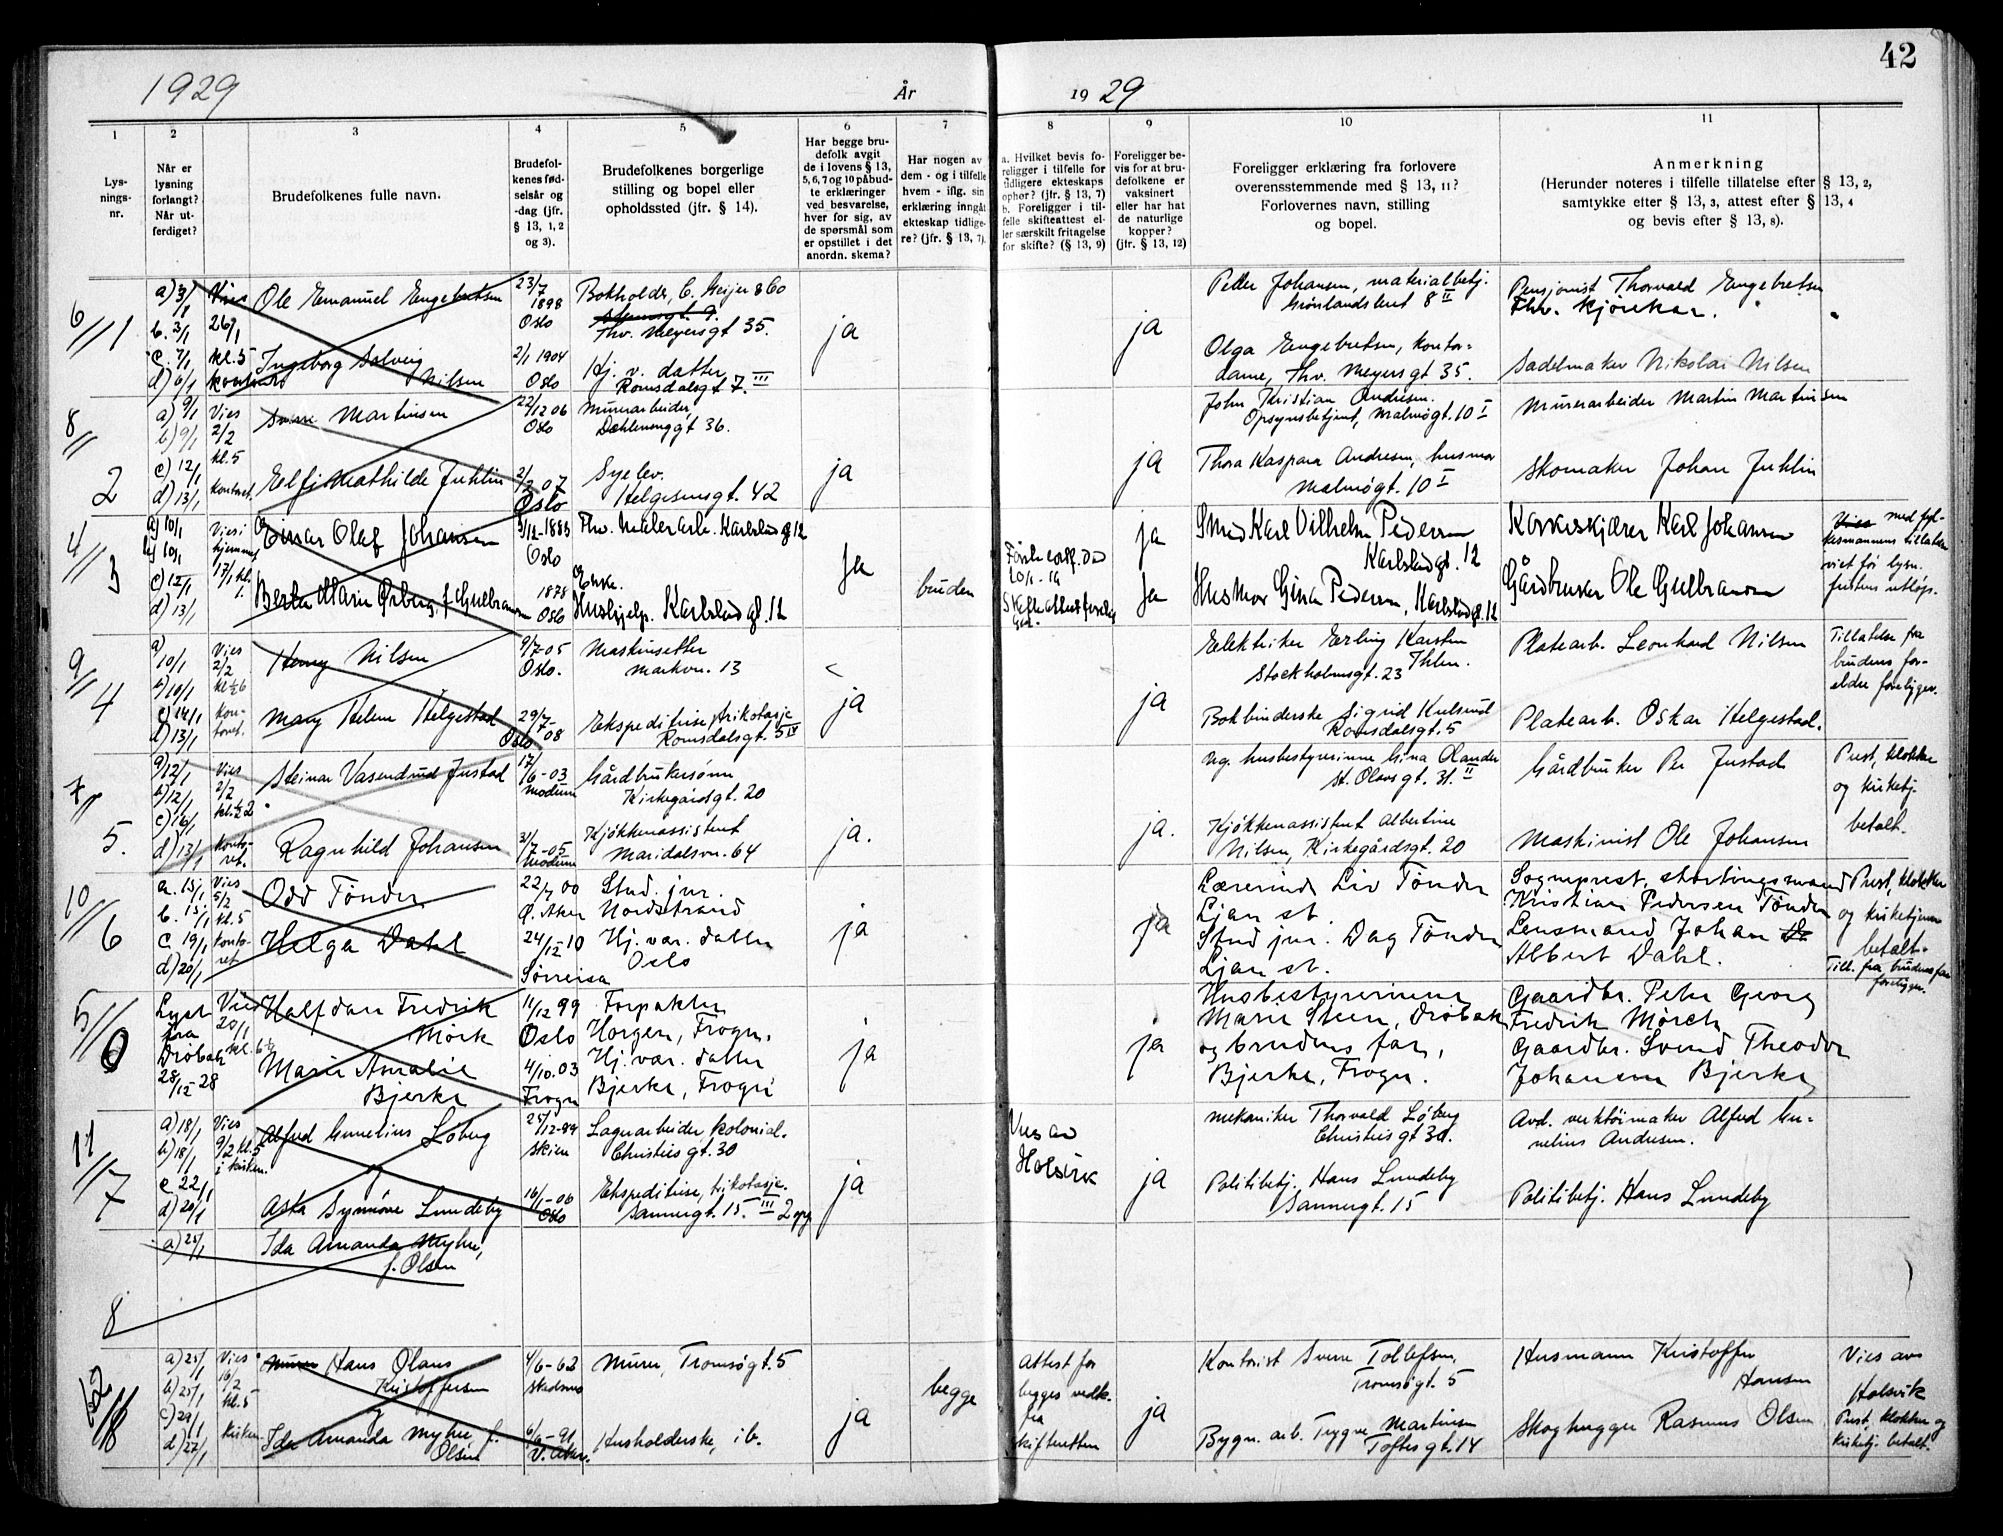 42
1929
År
19 29
1
2
3
4
5
6
7
8
9
10
11
Lys-
nings-
nr.
Når er
lysning
forlangt?
Når ut-
ferdiget?
Brudefolkenes fulle navn.
Brudefol-
kenes fød-
selsår og
-dag (jfr.
§ 13, 1, 2
og 3).
Brudefolkenes borgerlige
stilling og bopel eller
opholdssted (jfr. § 14).
Har begge bru-
defolk avgit
de i lovens § 13,
5, 6, 7 og 10 påbud-
te erklæringer
ved besvarelse,
hver for sig, av
de spørsmål som
er opstillet i det
anordn. skema?
Har nogen av
dem - og i tilfelle
hvem - iflg. sin
erklæring inngått
ekteskap tidlige-
re? (jfr. § 13, 7).
a. Hvilket bevis fo-
religger i tilfelle for
tidligere ekteskaps
ophør? (jfr. § 13, 7)
b. Foreligger i til-
felle skifteattest el-
ler særskilt fritagelse
for skifte? (§ 13, 9)
Foreligger be-
vis for at bru-
defolkene er
vaksinert
eller har hat
de naturlige
kopper?
(jfr. § 13, 12)
Foreligger erklæring fra forlovere
overensstemmende med § 13, 11?
Forlovernes navn, stilling
og bopel.
Anmerkning
(Herunder noteres i tilfelle tillatelse efter § 13, 2,
samtykke efter § 13, 3, attest efter § 13, 4
og bevis efter § 13, 8).
6//1
a) 3/1
b. 3/1
c. 7/1
d) 6/1
Vies
26/1
kl. 5
kontoret
Ole Emanuel Engebretsen
23/7
1898
Oslo
Bokholder, C. Geijer & Co
Thv. Meyersgt 35.
ja
ja
Petter Johansen, materialbetj.
Grønlandsleret 8 II
Pensjonist Thorvald Engebretsen
Thv. kjørekar.
Ingeborg Solveig
Nilsen
2/1 1904
Oslo
Hj. v. datter
Romsdalsgt 7. III
Olga Engebretsen, kontor-
dame, Thv. Meyersgt 35.
Sadelmaker Nikolai Nilsen
8//2
a) 9/1
b) 9/1
c) 12/1
d) 13/1
Vies
2/2
kl. 5
kontoret.
Sverre Martinsen
22/12 06
Oslo
Murarbeider,
Dælenenggt 36.
John Kristian Andresen.
Opsynsbetjent, Malmøgt. 10 I
Murerarbeider Martin Martinsen
Elfi Mathilde Juhlin
2/2 07
Oslo
Syelev.
Helgesensgt. 42
ja
ja
Thora Kaspara Andresen, husmor
Malmøgt. 10 I
Skomaker Johan Juhlin
4//3
a) 10/1
b) 10/1
c) 12/1
d) 13/1
Vies i
hjemmet
17/1 kl.
1.
Einar Olaf Johansen
Oslo
Fhv. Malerarb. Karlstadgt. 12
ja
Smed Karl Vilhelm Pedersen
Karlstadgt. 12
Korkeskjærer Karl Johansen
Vies med fyl-
kesmannens tillatelse
viet før lysn.
fristens utløp.
Berta Marie Ørberg, f. Gulbransen
1878
Oslo
Enke.
Hushjelp. Karlstadgt. 12
Ja
bruden
Ja
Husmor Gina Pedersen, Karlstadgt. 12
Gårdbruker Ole Gulbransen
9//4
a)
10/1
b) 10/1
c) 14/1
d) 13/1
Vies
2/2
kl ½6
kon-
toret.
Henry Nilsen
9/7-05
Oslo.
Maskinsetter
Markvn. 13
Elektriker Erling Karsten
Thlen.
Stockholmsgt. 23
Platearb. Leonhard Nilsen
Tillatelse fra
brudens for-
eldre foreligger.
Mary Helene Helgestad
29/7-
08
Oslo
Ekspeditrise, trikotasje
Romsdalsgt. 5 IV
ja
ja
Bokbinderske Sigrid
Romsdalsgt. 5
Platearb. Oskar Helgestad.
7//5.
a) 12/1
b) 12/1
c) 16/1
d) 13/1
Vies
2/2
kl. ½2
konto-
ret.
Steinar Vasendrud Justad
17/
6-03
Modum
Gårdbrukersønn
Kirkegårdsgt. 20
Ug. husbestyrerinne Gina Olander
St. Olavsgt. 31. II
Gårdbruker Per Justad
Prest, klokker
og kirketj.
betalt.
Ragnhild Johansen
31/
7-05
Modum
Kjøkkenassistent
Maridalsvn. 64
ja.
ja.
Kjøkkenassistent Albertine
Nilsen, Kirkegårdsgt. 20
Maskinist Ole Johansen
10//6
a. 15/1
b. 15/1
c 19/1
d) 20/1
Vies
5/2
kl. 5
konto-
ret
Odd Tönder
22/7 00
Ø. Aker
Stud. jur.
Nordstrand
Lærerinde Liv Tönder
Ljan st.
Sogneprest, stortingsmand
Kristian Pedersen Tönder
Prest, klokker
og kirketjener
betalt.
Till. fra brudens far
foreligger.
Helga Dahl
24/12 10
Sörreisa
Hj. vær. datter
Oslo
ja
ja
Stud jur. Dag Tönder
Ljan st.
Lensmand Johan
Albert Dahl.
5//0
Lyst
fra
Dröbak
28/12-28
Vies
20/1
kl. 6½
Halfdan Fredrik
Mörk
11/12 99
Oslo
Forpakter
Horgen, Frogn.
Husbestyrerinne
Marie Steen, Dröbak
Gaardbr. Peter Georg
Fredrik Mörch
Marie Amalie
Bjerke
4/10.03
Frogn
Hj. vær. datter
Bjerke, Frogn
ja
ja
og brudens far,
Bjerke, Frogn.
Gaardbr. Svend Theodor
Johansen Bjerke
11//7
a) 18/1
b) 18/1
c 22/1
d) 20/1
Vies
9/2 kl. 5
i kirken.
Alfred Cornelius Løberg
25/12-99
Skien
Lagerarbeider kolonial.
Christiesgt. 30
Vies av
Holsvik
Mekaniker Thorvald Løberg
Christiesgt 30.
Avd. verktøimaker Alfred Cor-
nelius Andresen.
Aska Synnøve Lundeby
16/1-06
Oslo
Ekspeditrise, trikotasje.
Sannergt. 15. III 2 opg
ja
ja
Politibetj. Hans Lundeby
Sannergt. 15
Politibetj. Hans Lundeby
8
a) 25/1
Ida Amanda Myhre,
f. Olsen
12//8
a) 25/1
b) 25/1
c) 29/1
d) 27/1
Vies
16/2
kl. 5
kirken
Hans Olaus
Kristoffersen
4/6-62
Murer, Tromsøgt. 5
begge
Attest for
begges vedk.
fra
skifteretten
Kontorist Sverre Tollefsen,
Tromsøgt. 5
Husmann Kristoffer
Hansen
Vies av
Holsvik
Prest, klokker og
kirketj. betalt.
Ida Amanda Myhre f.
Olsen
6/6-91
V. Aker.
Husholderske, ib.
ja
ja
Bygn. arb. Trygve Martinsen
Toftesgt. 14
Skoghugger Rasmus Olsen